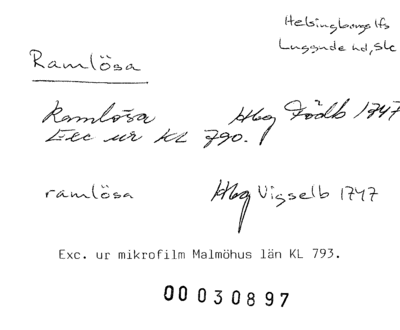 Helsingborgs lfs
Luggude hd, Sk
Ramlösa
Ramlösa Hbg Födb 1747
Exc ur KL 790.
ramlösa Hbg Vigselb 1747
Exc. ur mikrofilm Malmöhus län KL 793.
00030897